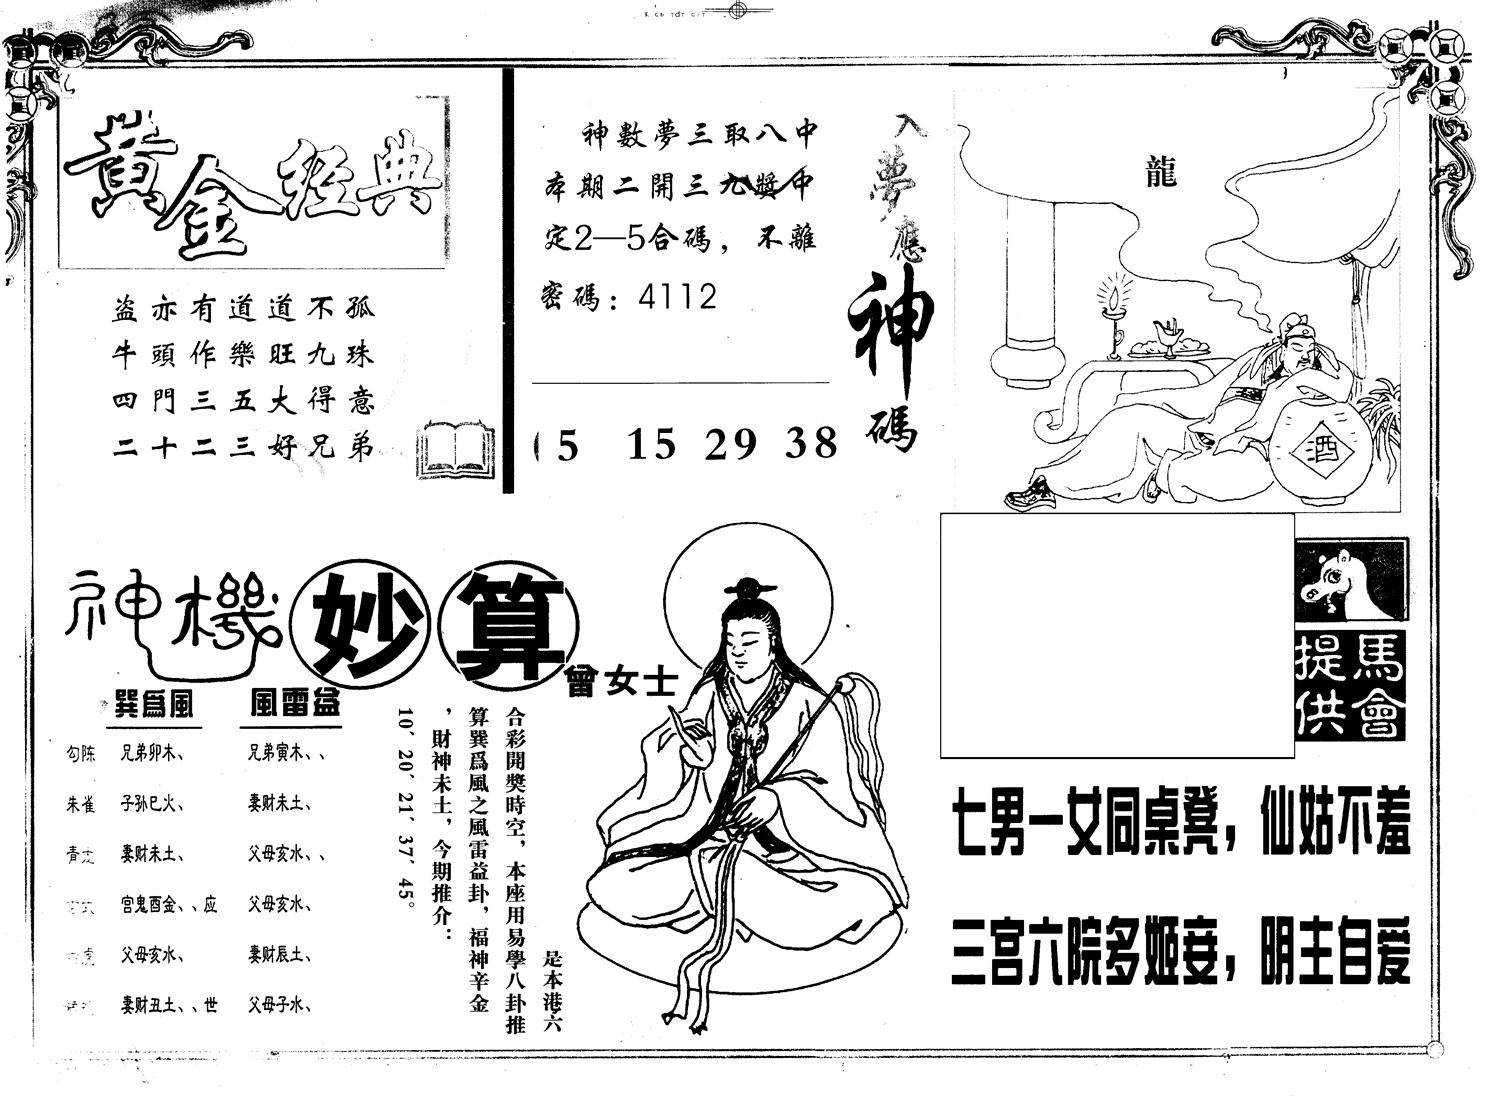 黃金經典
盜亦有道道不孤
牛頭作樂旺九珠
四門三五大得意
二十二三好兄弟
神數夢三取八中
本期二開三九獎中
定2—5合碼，不離
密碼：4112
5 15 29 38
入夢應神碼
龍
酒
神機妙算
曾女士
巽為風 風雷益
勾陈 兄弟卯木、 兄弟寅木、、
朱雀 子孙巳火、 妻财未土、
青龙 妻财未土、 父母亥水、、
宫鬼酉金、、应 父母亥水、
父母亥水、 妻财辰土、
妻财丑土、、世 父母子水、
是本港六
合彩開獎時空，本座用易學八卦推
算巽爲風之風雷益卦，福神辛金
，財神未土，今期推介：
10′20′21′37′45。
馬會
提供
七男一女同桌凳，仙姑不羞
三宫六院多姬妾，明主自爱